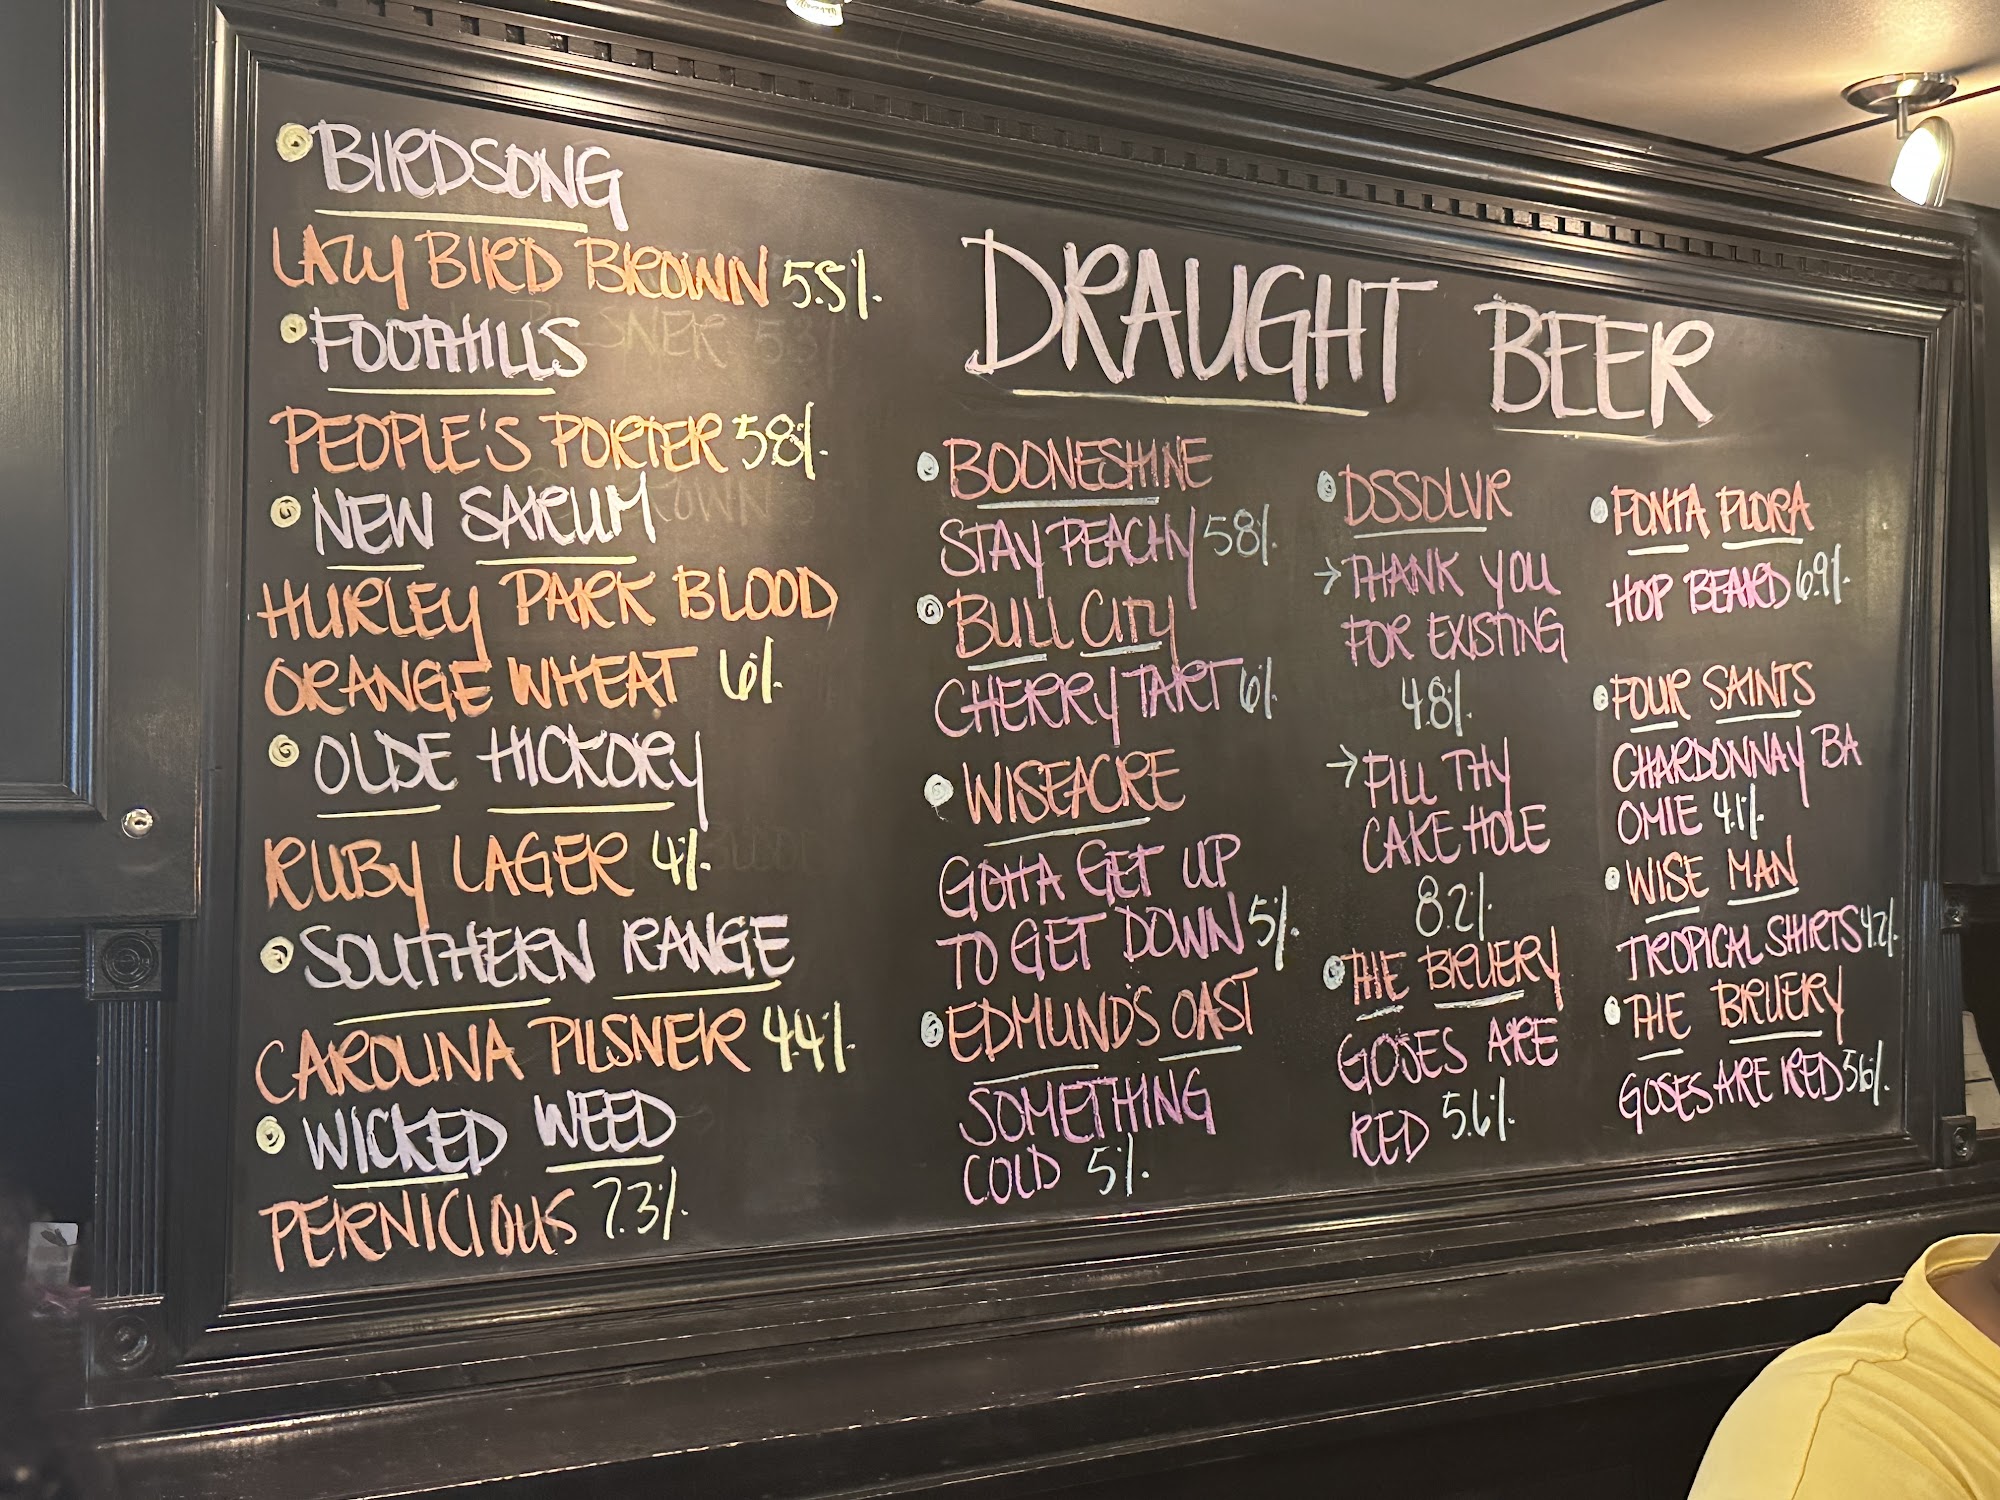 BIRDSONG
LAZY BIRD BROWN 5.5%
FOOTHILLS
PEOPLE'S PORTER 5.8%
NEW SARUM
HURLEY PARK BLOOD
ORANGE WHEAT 6%
OLDE HICKORY
RUBY LAGER 4%
SOUTHERN RANGE
CAROLINA PILSNER 4.4%
WICKED WEED
PERNICIOUS 7.3%
DRAUGHT BEER
BOONESHINE
STAY PEACHY 5.8%
BULL CITY
CHERRY TART 6%
WISEACRE
GOTTA GET UP
TO GET DOWN 5%
EDMUND'S OAST
SOMETHING
COLD 5%
DSSOLVR
→ THANK YOU
FOR EXISTING
4.8%
→ FILL THY
CAKE HOLE
8.2%
THE BRUERY
GOSES ARE
RED 5.6%
FONTA FLORA
HOP BEARD 6.9%
FOUR SAINTS
CHARDONNAY BA
OMIE 4.1%
WISE MAN
TROPICAL SHIRTS 4.2%
THE BRUERY
GOSES ARE RED 5.6%